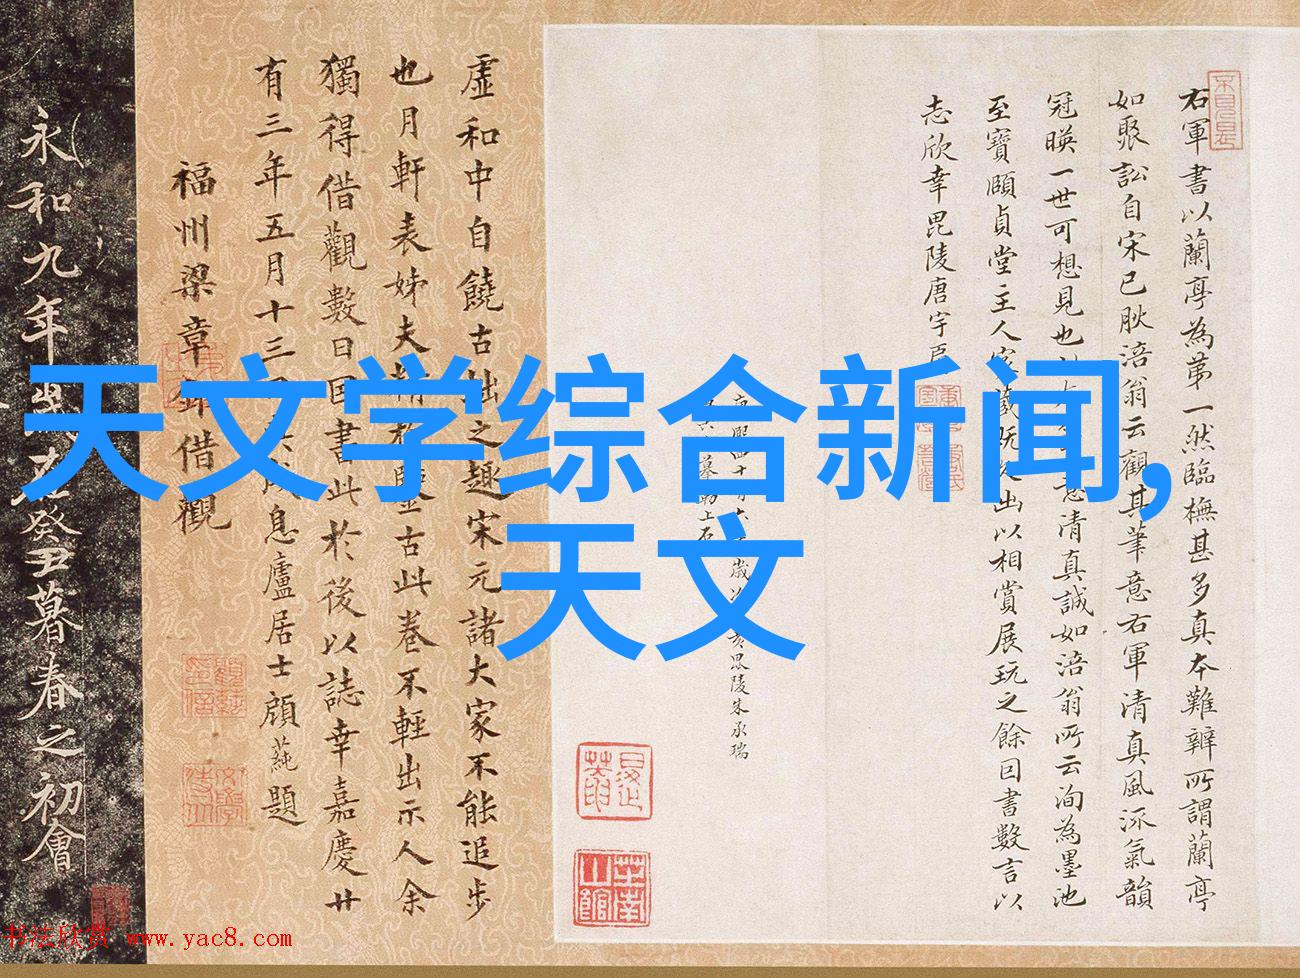 天文学综合新闻,
天文
右軍書以蘭亭為苐一然臨橅甚多真本難辨所謂蘭亭
如聚訟自宋已肰涪翁云觀其筆意右軍清真風流氣韻
冠暎一世可想見也意清真誠如涪翁所云洵為墨池
至寶頤貞堂主人家藏既出以相賞展玩之餘因書數言以
志欣幸毘陵唐宇
毘陵朱承瑞
上石
虛和中自饒古拙之趣宋元諸大家不能追步
也月軒表姊夫精於古此卷不輕出示人余
獨得借觀數日因書此於後以誌幸嘉慶廿
有三年五月十三息廬居士顧蒓題
福州梁章鉅借觀
永和九年歲在癸丑暮春之初會
书法欣赏 www.yac8.com